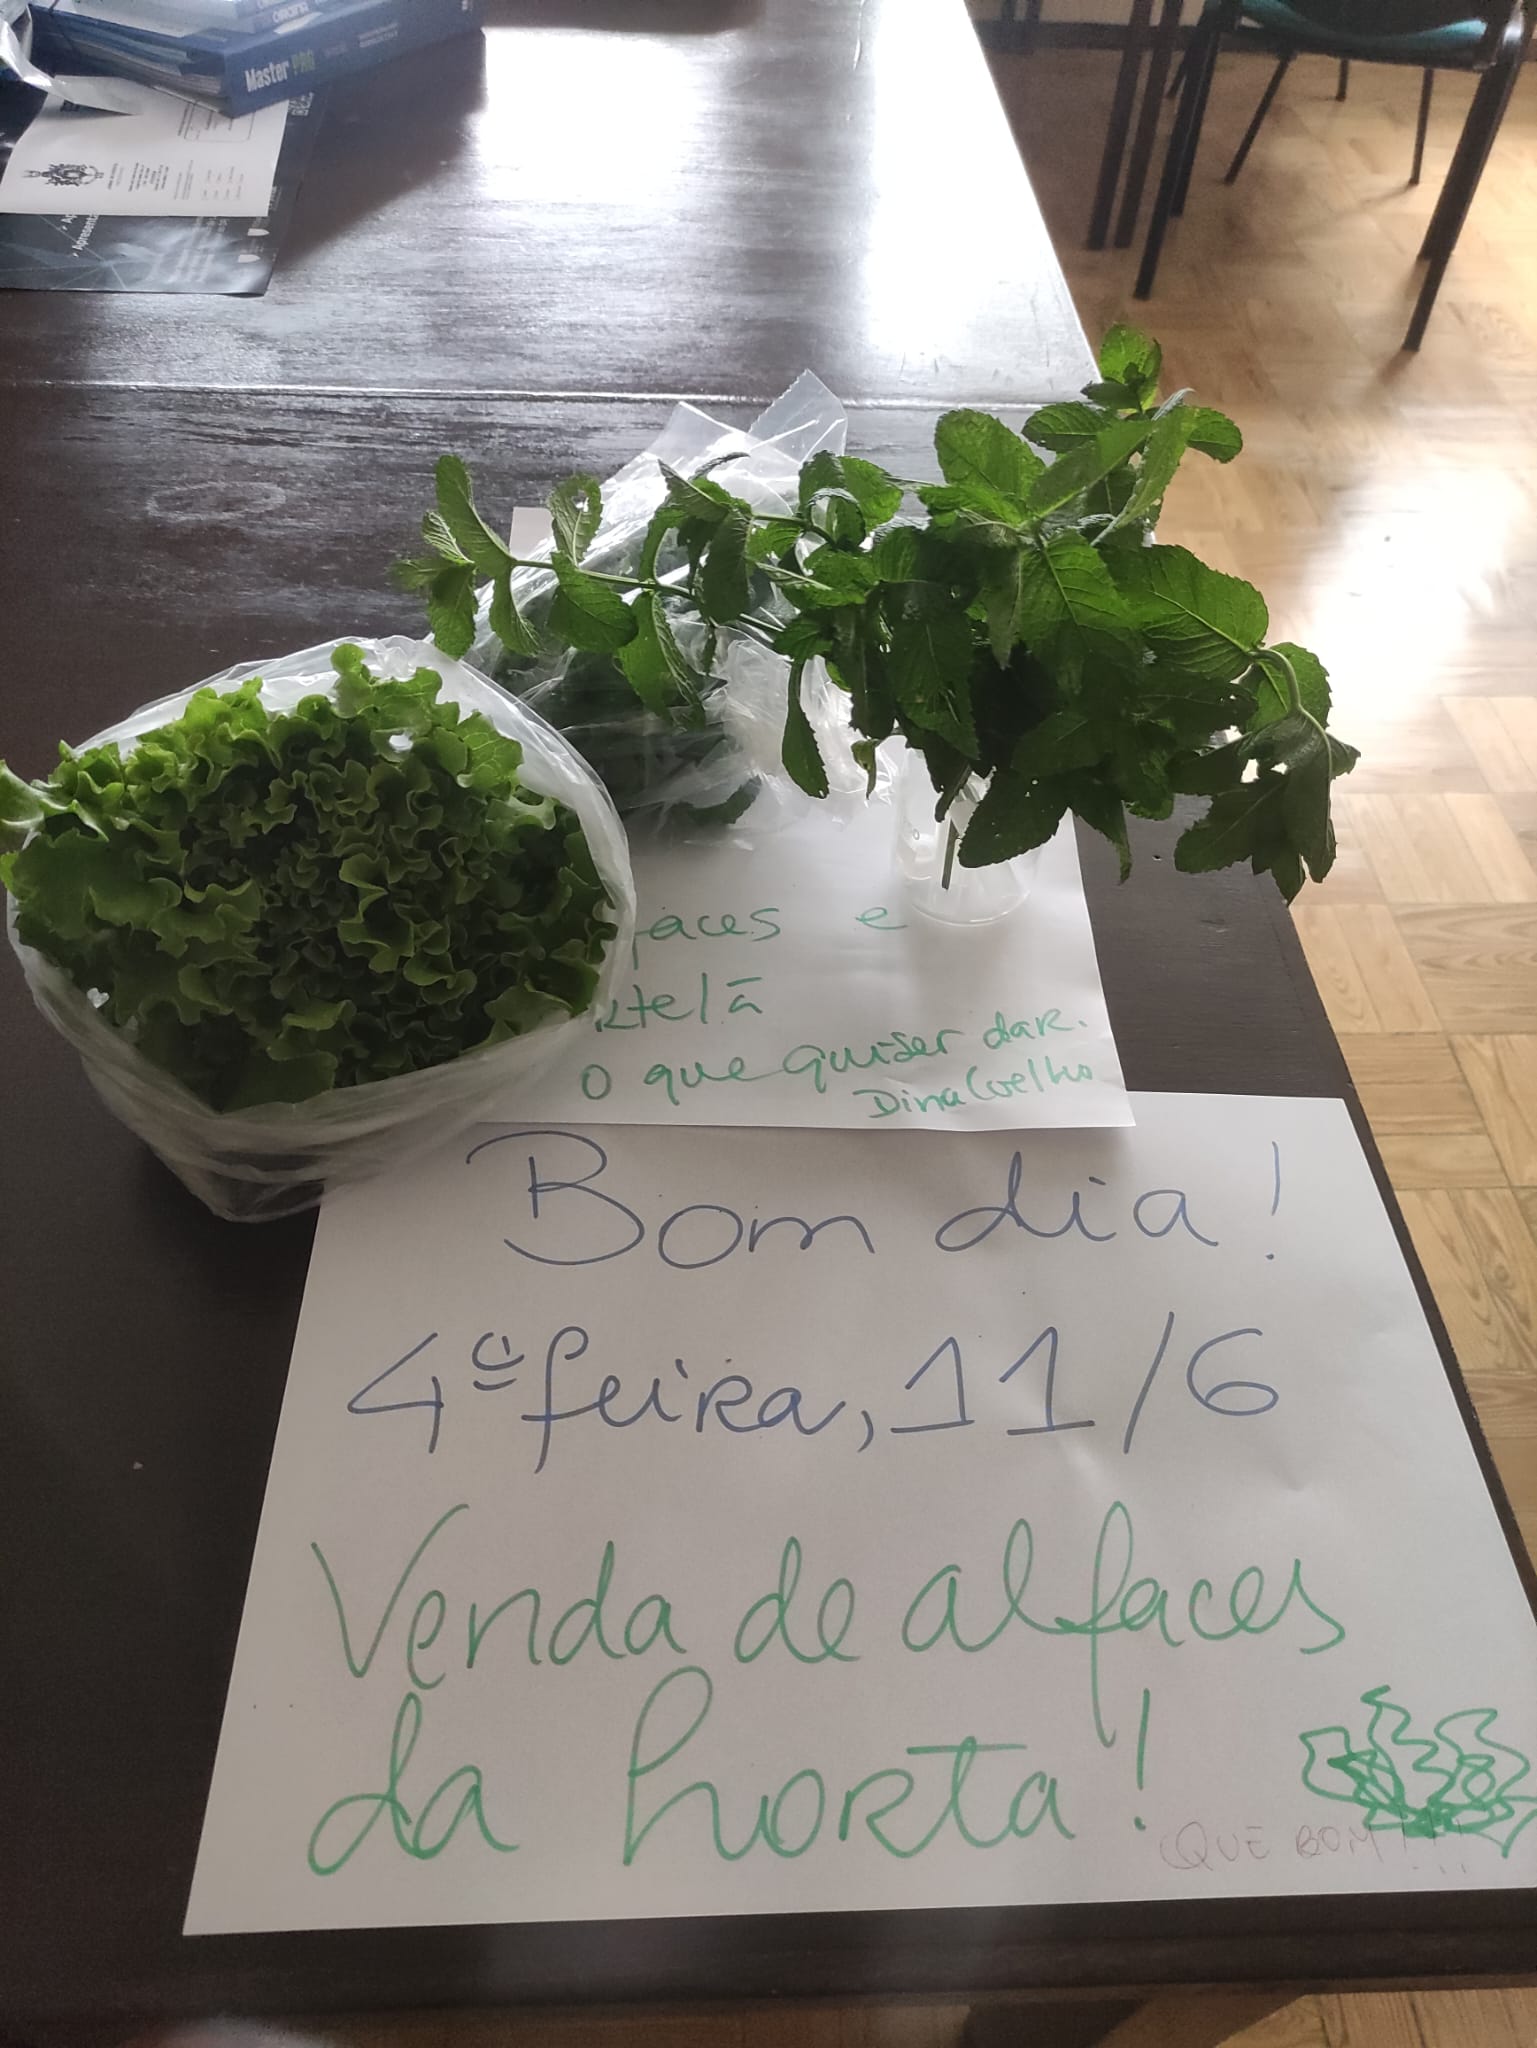 Master PRO
Apresenta
faces e
rtelã
O que quiser dar.
Dina Coelho
Bom dia!
4ª feira, 11/6
Venda de alfaces
da horta!
QUE BOM!!!